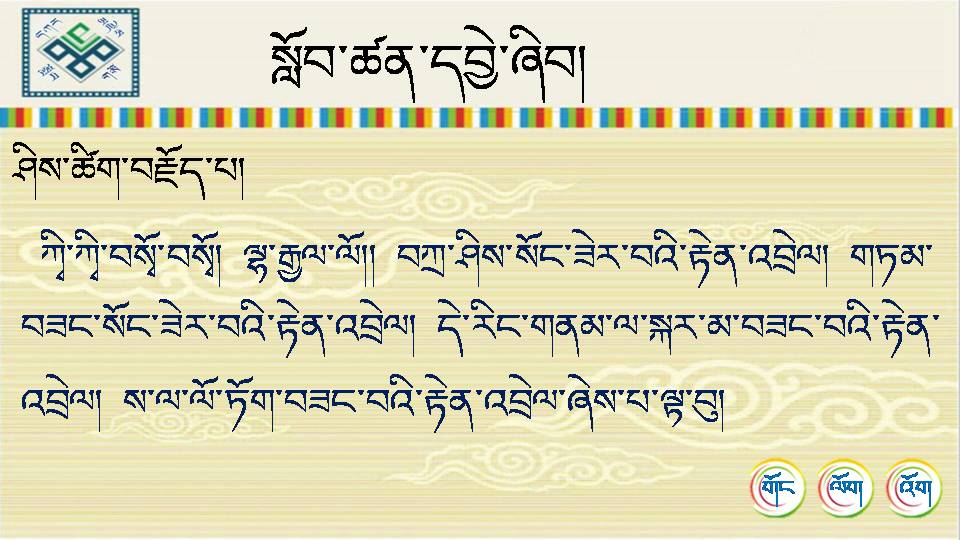 སློབ་ཚན་དབྱེ་ཞིབ།
ཤིས་ཚིག་བརྗོད་པ།
ཀྱི་ཀྱི་བསྭོ་བསྭོ། ལྷ་རྒྱལ་ལོ།། བཀྲ་ཤིས་སོང་ཟེར་བའི་རྟེན་འབྲེལ། གཏམ་
བཟང་སོང་ཟེར་བའི་རྟེན་འབྲེལ། དེ་རིང་གནམ་ལ་སྐར་མ་བཟང་བའི་རྟེན་
འབྲེལ། ས་ལ་ལོ་ཏོག་བཟང་བའི་རྟེན་འབྲེལ་ཞེས་པ་ལྟ་བུ།
གོང ལོག འོག